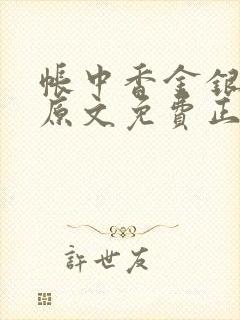 帳中香金銀
原文免費正
許世友